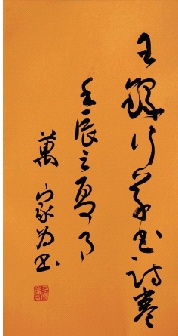 王鐸行草書詩卷
壬辰之夏月
萬家為書